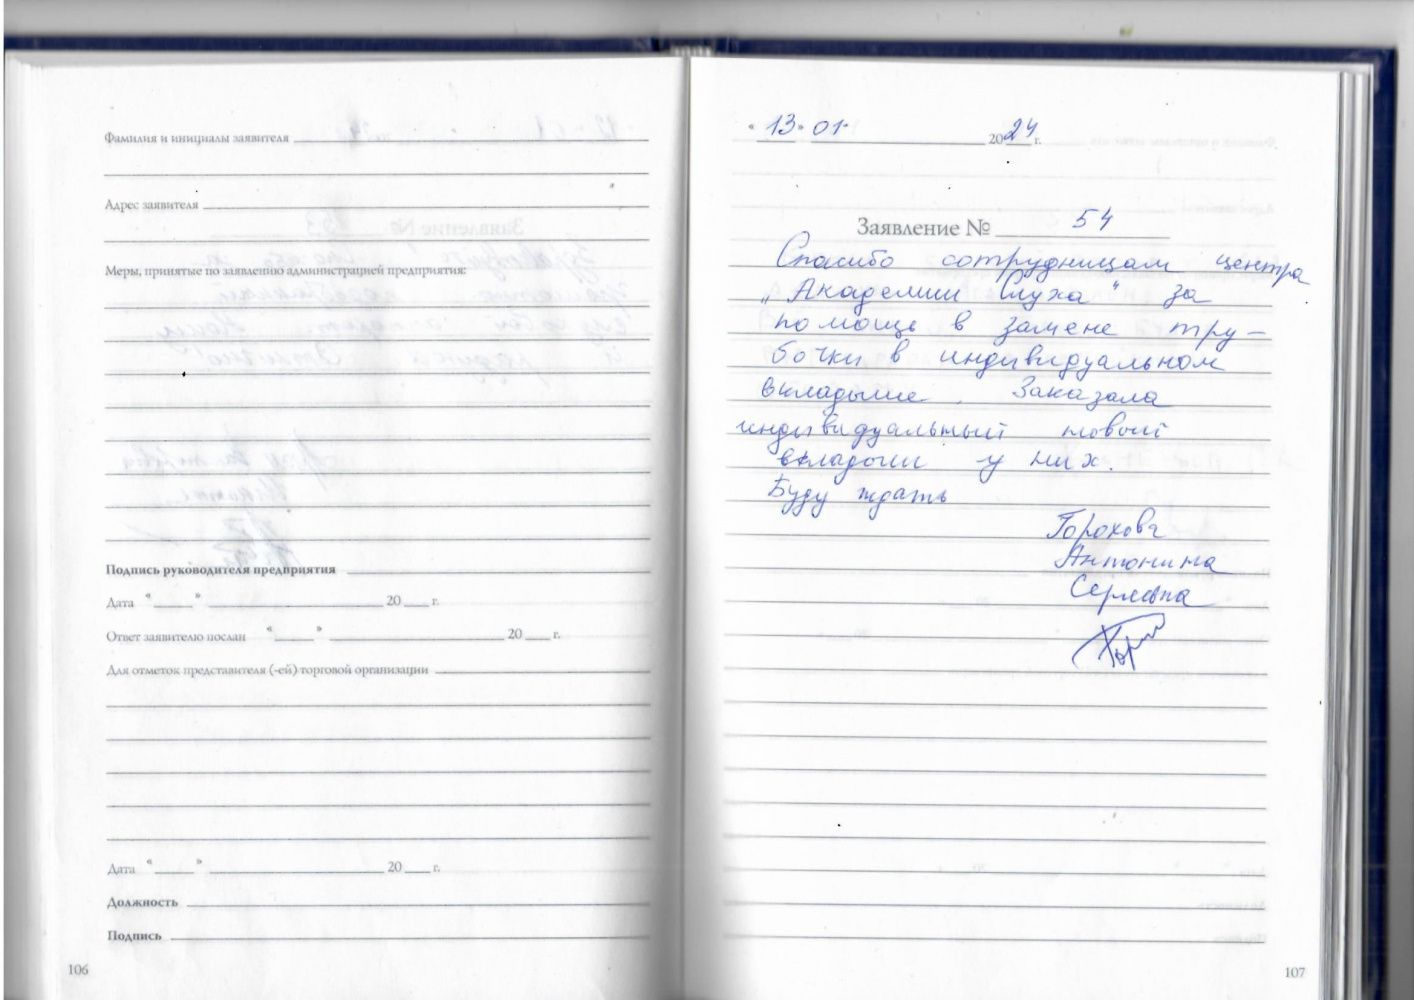 Фамилия и инициалы заявителя
Адрес заявителя
Меры, принятые по заявлению администрацией предприятия:
Подпись руководителя предприятия
Дата « » 20 г.
Ответ заявителю послан « » 20 г.
Для отметок представителя (-ей) торговой организации
Дата « » 20 г.
Должность
Подпись
106
« 13 » 01. 2024 г.
Заявление № 54
Спасибо сотрудницам центра
„Академии Слуха“ за
помощь в замене тру-
бочки в индивидуальном
вкладыше. Заказала
индивидуальный новый
вкладыш у них.
Буду ждать
Горохова
Антонина
107